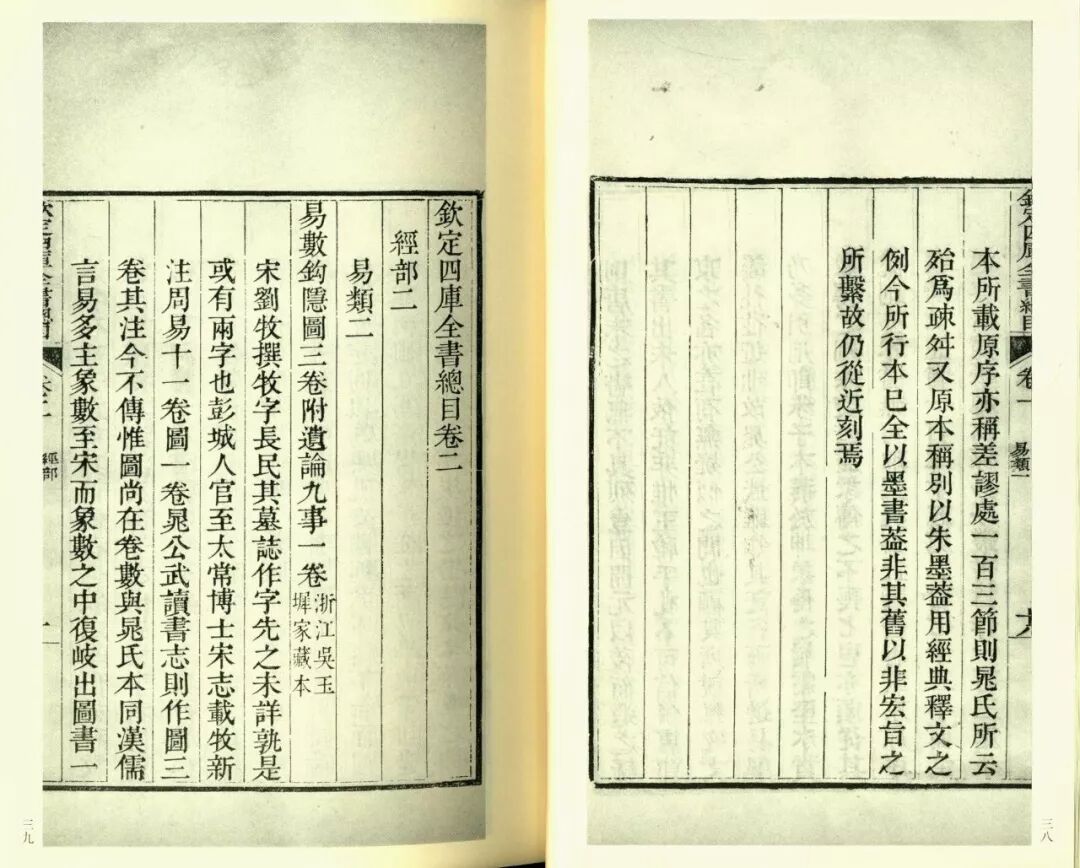 欽定四庫全書總目 卷一 易類一
本所載原序亦稱差謬處一百三節則晁氏所云
殆爲疎舛又原本稱別以朱墨葢用經典釋文之
例今所行本巳全以墨書葢非其舊以非宏旨之
所繫故仍從近刻焉
三八
欽定四庫全書總目卷二
經部二
易類二
易數鈎隱圖三卷附遺論九事一卷 浙江吳玉
墀家藏本
宋劉牧撰牧字長民其墓誌作字先之未詳孰是
或有兩字也彭城人官至太常博士宋志載牧新
注周易十一卷圖一卷晁公武讀書志則作圖三
卷其注今不傳惟圖尚在卷數與晁氏本同漢儒
言易多主象數至宋而象數之中復岐出圖書一
欽定四庫全書總目 卷二 經部 一
三九